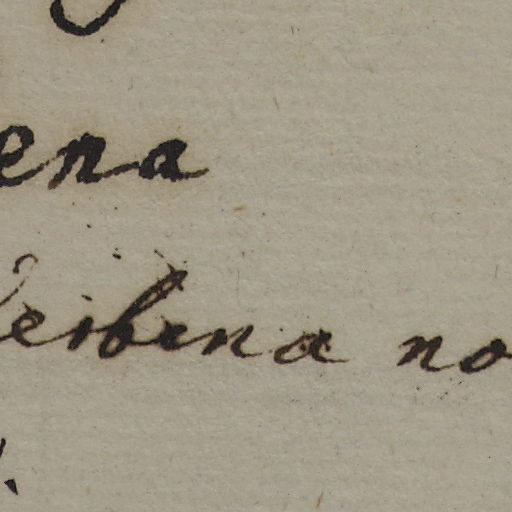 ena
Verbena no